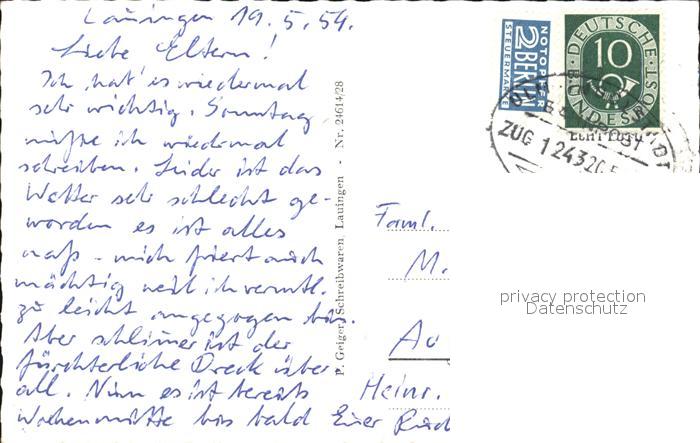 Lauingen 19.5.54.
Liebe Eltern!
Ich hab' es wiedermal
sehr wichtig. Sonntag
müßte ich wiedermal
schreiben. Leider ist das
Wetter sehr schlecht ge-
worden es ist alles
naß - mich friert auch
mächtig weil ich vermtl.
zu leicht angezogen bin.
Aber schlimer ist der
fürchterliche Dreck über
all. Nun es ist bereits
Wochenmitte bis bald Euer
P. Geiger, Schreibwaren, Lauingen · Nr. 24614/28
NOTOPFER
2 BERLIN
STEUERMARKE
DEUTSCHE
BUNDESPOST
10
BAHNPOST
ZUG 1243 20.5
Faml.
M.
Au
Heinr.
privacy protection
Datenschutz